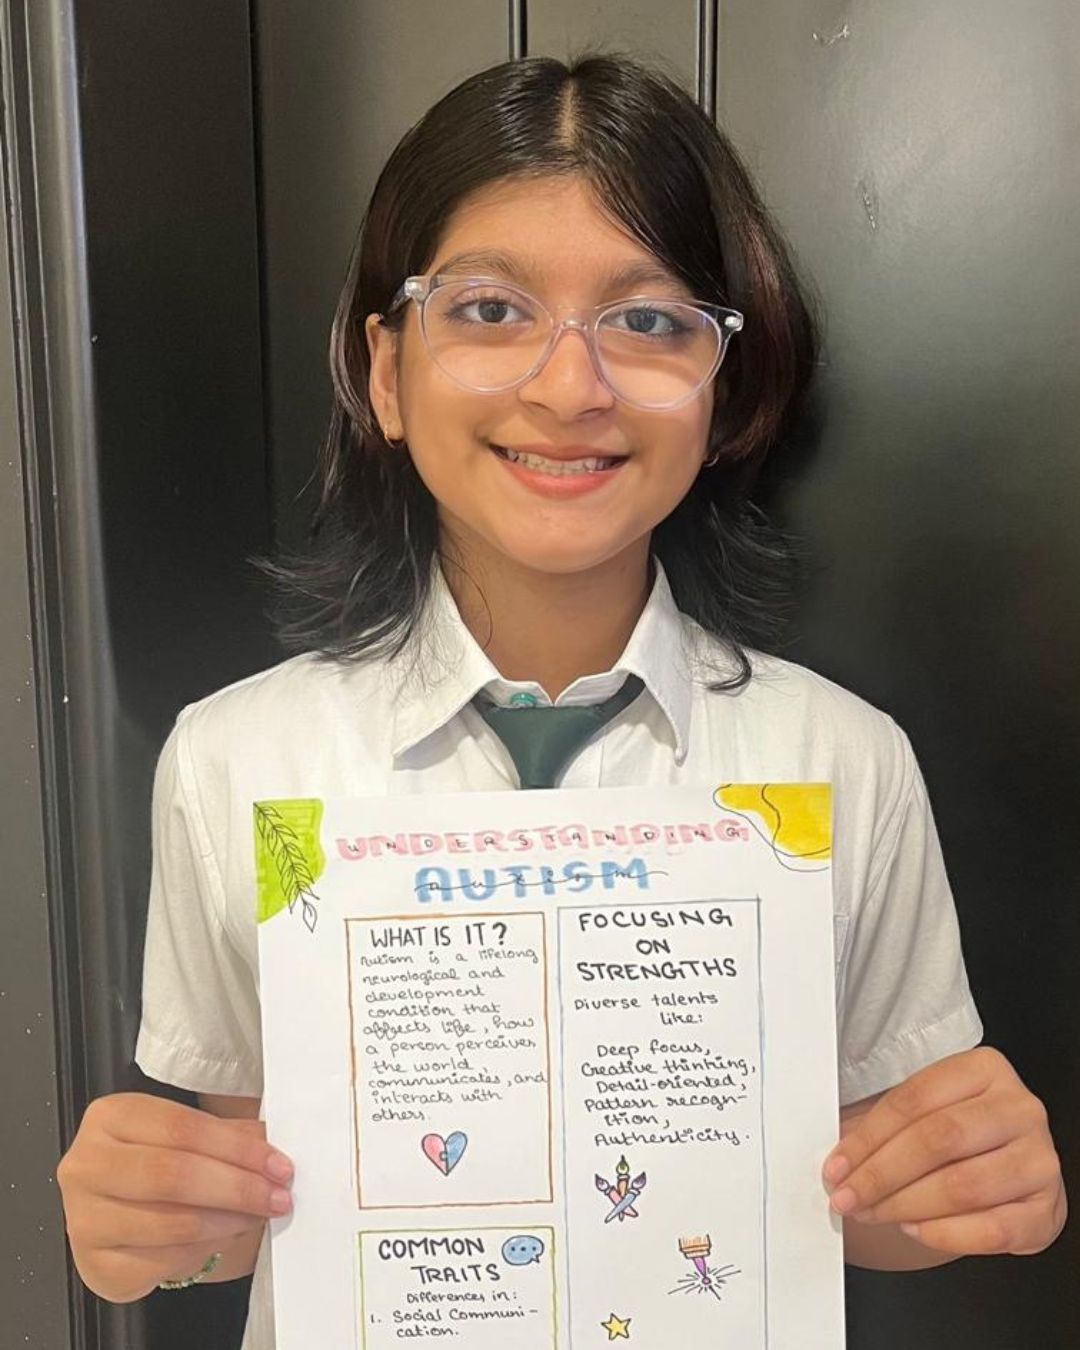 UNDERSTANDING
AUTISM
WHAT IS IT?
Autism is a lifelong
neurological and
development
condition that
affects life, how
a person perceives
the world,
communicates, and
interacts with
others.
COMMON
TRAITS
Differences in:
1. Social Communi-
cation.
FOCUSING
ON
STRENGTHS
Diverse talents
like:
Deep focus,
Creative thinking,
Detail-oriented,
Pattern recogn-
ition,
Authenticity.